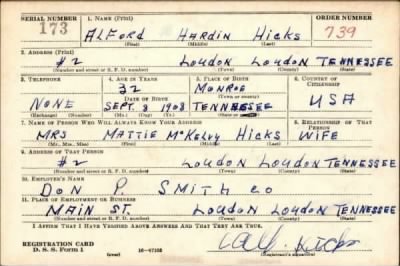 SERIAL NUMBER 1. NAME (Print) ORDER NUMBER
173 ALFORD HARDIN HICKS 739
(First) (Middle) (Last)
2. ADDRESS (Print)
#2 LOUDON LOUDON TENNESSEE
(Number and street or R. F. D. number) (Town) (County) (State)
3. TELEPHONE 4. AGE IN YEARS 5. PLACE OF BIRTH 6. COUNTRY OF CITIZENSHIP
32 MONROE
DATE OF BIRTH (Town or county)
NONE SEPT. 8 1908 TENNESSEE USA
(Exchange) (Number) (Mo.) (Day) (Yr.) (State or country)
7. NAME OF PERSON WHO WILL ALWAYS KNOW YOUR ADDRESS 8. RELATIONSHIP OF THAT PERSON
MRS MATTIE McKELVY HICKS WIFE
(Mr., Mrs., Miss) (First) (Middle) (Last)
9. ADDRESS OF THAT PERSON
#2 LOUDON LOUDON TENNESSEE
(Number and street or R. F. D. number) (Town) (County) (State)
10. EMPLOYER'S NAME
DON P. SMITH CO
11. PLACE OF EMPLOYMENT OR BUSINESS
MAIN ST. LOUDON LOUDON TENNESSEE
(Number and street or R. F. D. number) (Town) (County) (State)
I AFFIRM THAT I HAVE VERIFIED ABOVE ANSWERS AND THAT THEY ARE TRUE.
REGISTRATION CARD
D. S. S. Form 1 (over) Hicks